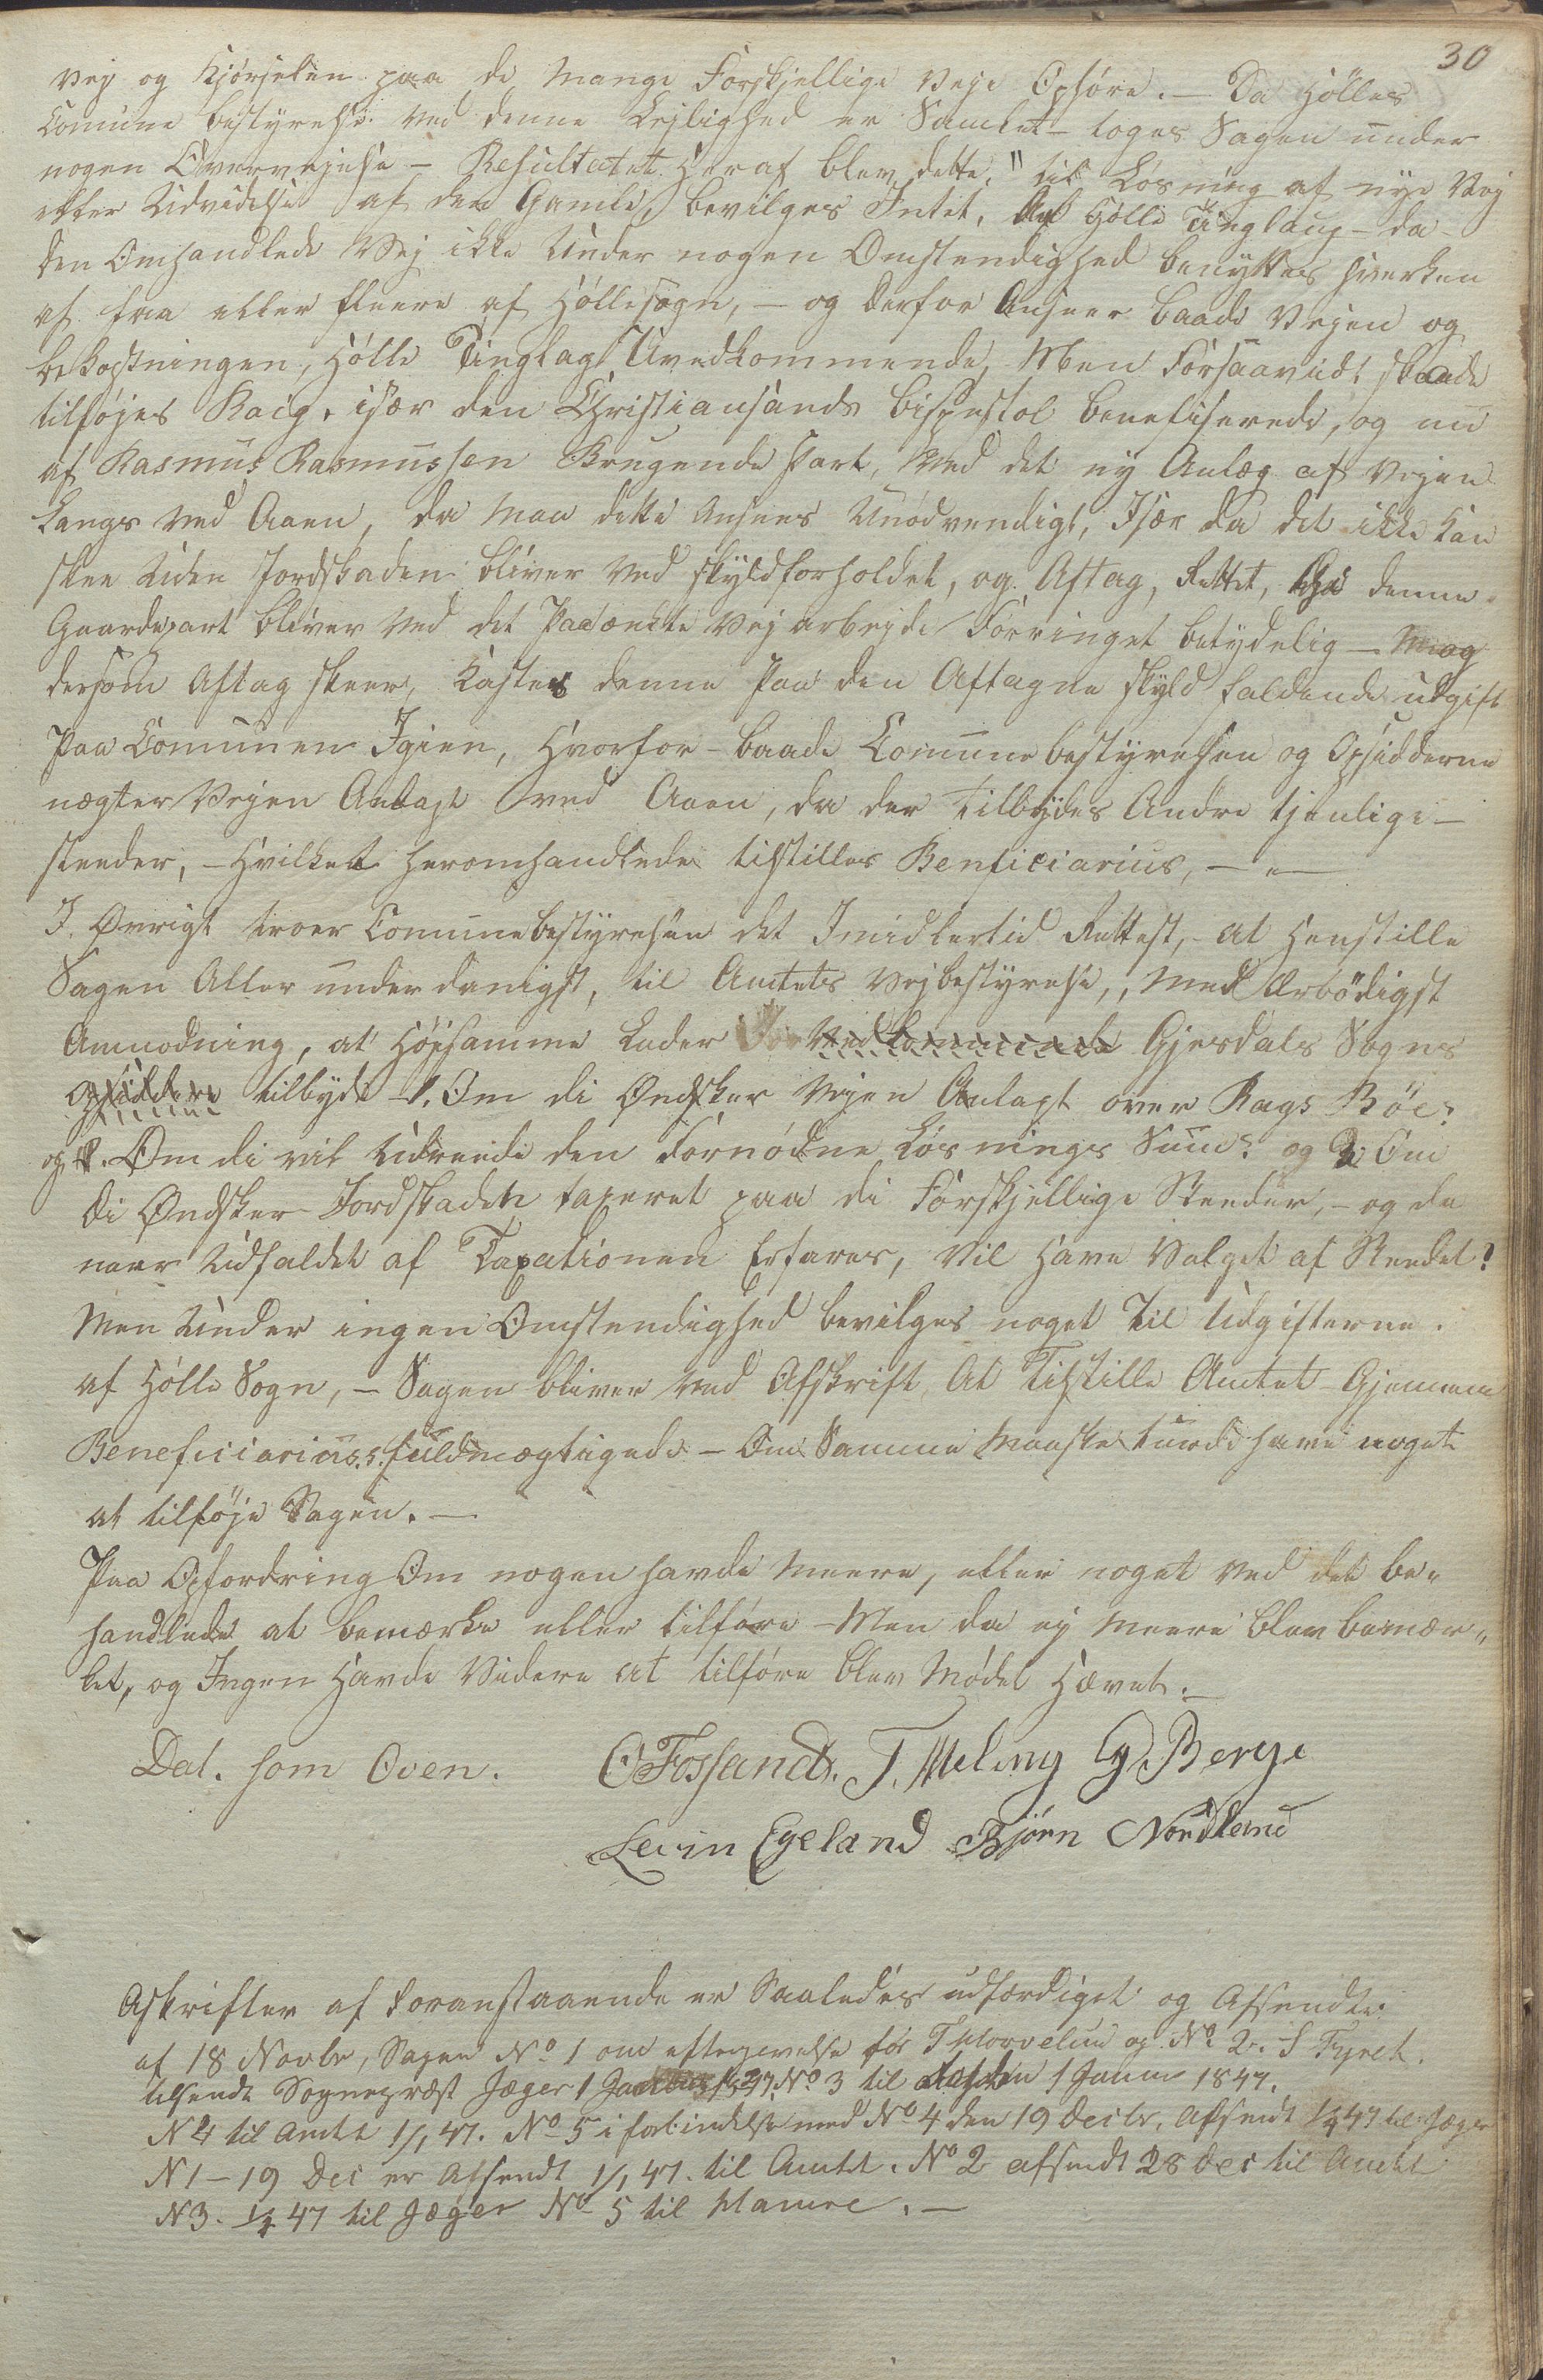 30
Vej og Kjørselen paa de mange Forskjellige Veje Ophøre. — Da Hölles
Comune bestyrelse ved denne Lejlighed er Samlet — toges Sagen under
nogen Overvejelse — Resultatet Heraf blev dette, " til Løsning af nye Vej
eller Udvidelse af den Gamle, bevilges Intet, Af Hölle Tinglaug — da
den Omhandlede Vej ikke Under nogen Omstendighed benyttes hverken
af faa eller fleere af Höllesogn, — og derfor Anseer baade Vejen og
bekostningen, Hölle Tinglag Uvedkommende, Men Forsaavidt skade
tilføjes Raeg. især den Christiansands bispestol beneficerede, og nu
af Rasmus Rasmussen Brugende Part, Med det ny Anlæg af Vejen
Langs ved Aaen, da maa dette Ansees Unødvendigt, Især da det ikke kan
skee Uden Jordskaden bliver ved skyldforholdet, og Aftag, Rettet, Thi denne
Gaardepart bliver ved det Paatænkte Vejarbejde Forringet betydelig — og
dersom Aftag skeer, Kastes denne Paa den Aftagne skyld faldende udgift
Paa Comunen Igien, Hvorfor — baade Comune bestyrelsen og Opsidderne
nægter Vejen Anlagt ved Aaen, da der Tilbydes Andre tjenlige —
steeder, — Hvilket heromhandlede tilstilles Benficiarius, — „ —
I. Øvrigt troer Comunebestyrelsen det Imidlertid Rettest, — at Henstille
Sagen Aller underdanigst, til Amtets Vejbestyrelse, , med Ærbødigst
Anmodning, at Højsamme Lader Vedkommende Gjesdals Sogns
Opsiddere tilbyde — 1. Om di Ønsker Vejen Anlagt over Rags Böe?
og 2. Om di vil Udreede den Fornødne Løsnings Sum? og 3 Om
di Øndsker Jordskaden taxeret paa di Forskjellige Steeder, — og da
naar Udfaldet af Taxationen Erfares, vil Have Valget af Steedet?
Men Under ingen Omstendighed bevilges noget til Udgifterne.
af Hölle Sogn, — Sagen bliver ved Afskrift At Tilstille Amtet — Gjennem
Beneficiariuss. fuldmægtigede — Om Samme Maaske turde have noget
at tilføje Sagen. —
Paa Opfordring Om nogen havde meere, eller noget ved det be„
handlede at bemærke eller tilføre — Men da ej meere blev bemær„
ket, og Ingen Havde Videre at tilføre blev Mødet Hævet. —
Dat. som Oven. O Fossand. T. Meling G. Berge
Levin Egeland Bjørn Nordland
Afskrifter af Foranstaaende er Saaledes udfærdiget og Afsendte.
af 18 Novbr, Sagen No 1 om eftergivelse for T og No 2. S
tilsendt Sogneprest Jæger 1 No 3 til 1 Januar 1847.
N 4 til Amtet 1/1 47. No 5 i forbindelse med No 4 den 19 Decbr. Afsendt 1/1 47 til Jæger
N 1 — 19 Dec er Afsendt 1/1 47. til Amtet. No 2 afsendt 28 Dec til Amtet
N 3. 1/1 47 til Jæger No 5 til . —